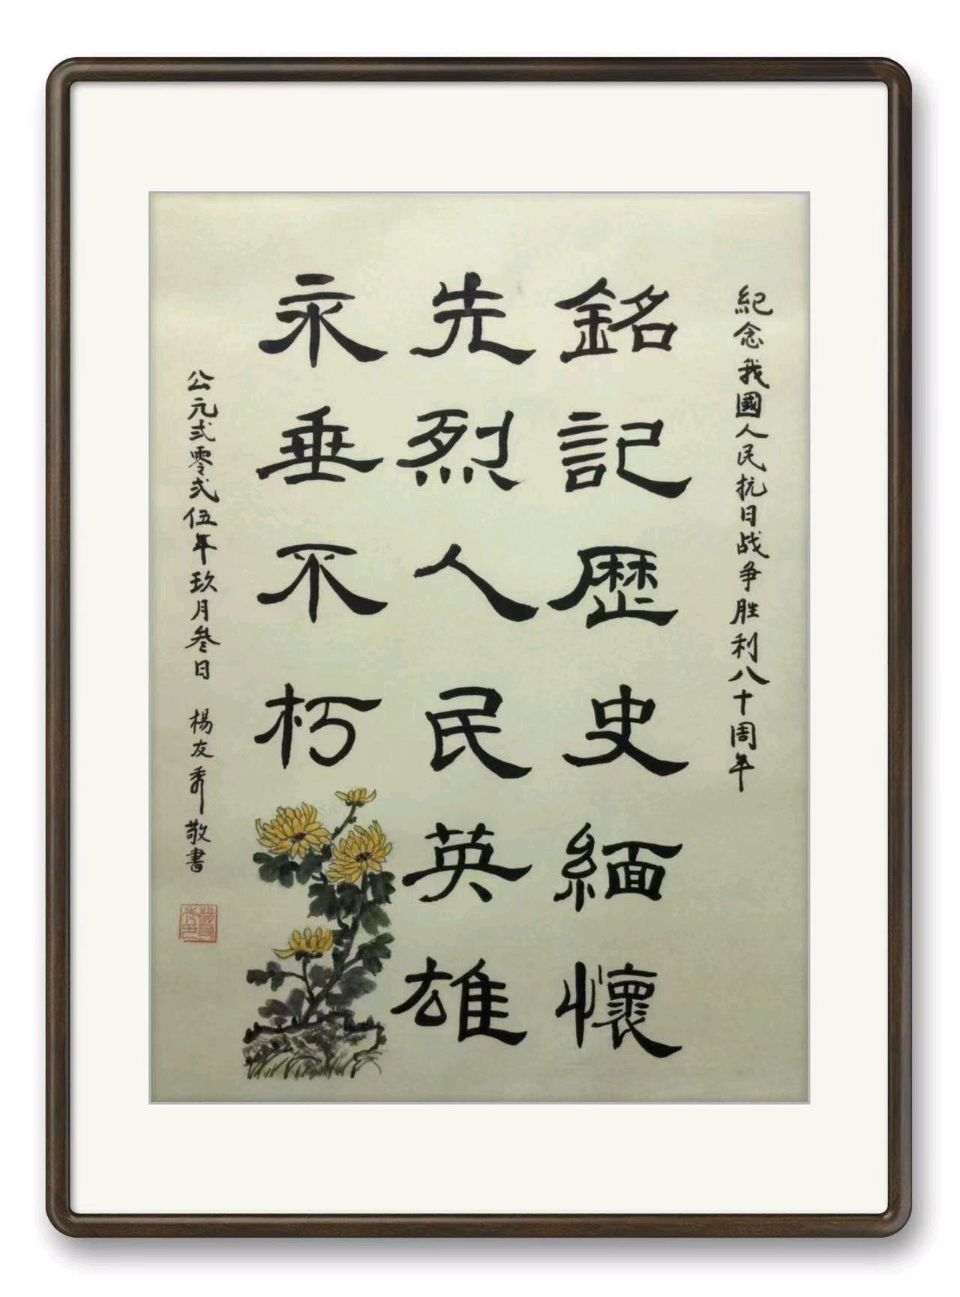 紀念我國人民抗日战争胜利八十周年
銘記歷史緬懷
先烈人民英雄
永垂不朽
公元弍零弍伍年玖月叁日 楊友秀敬書